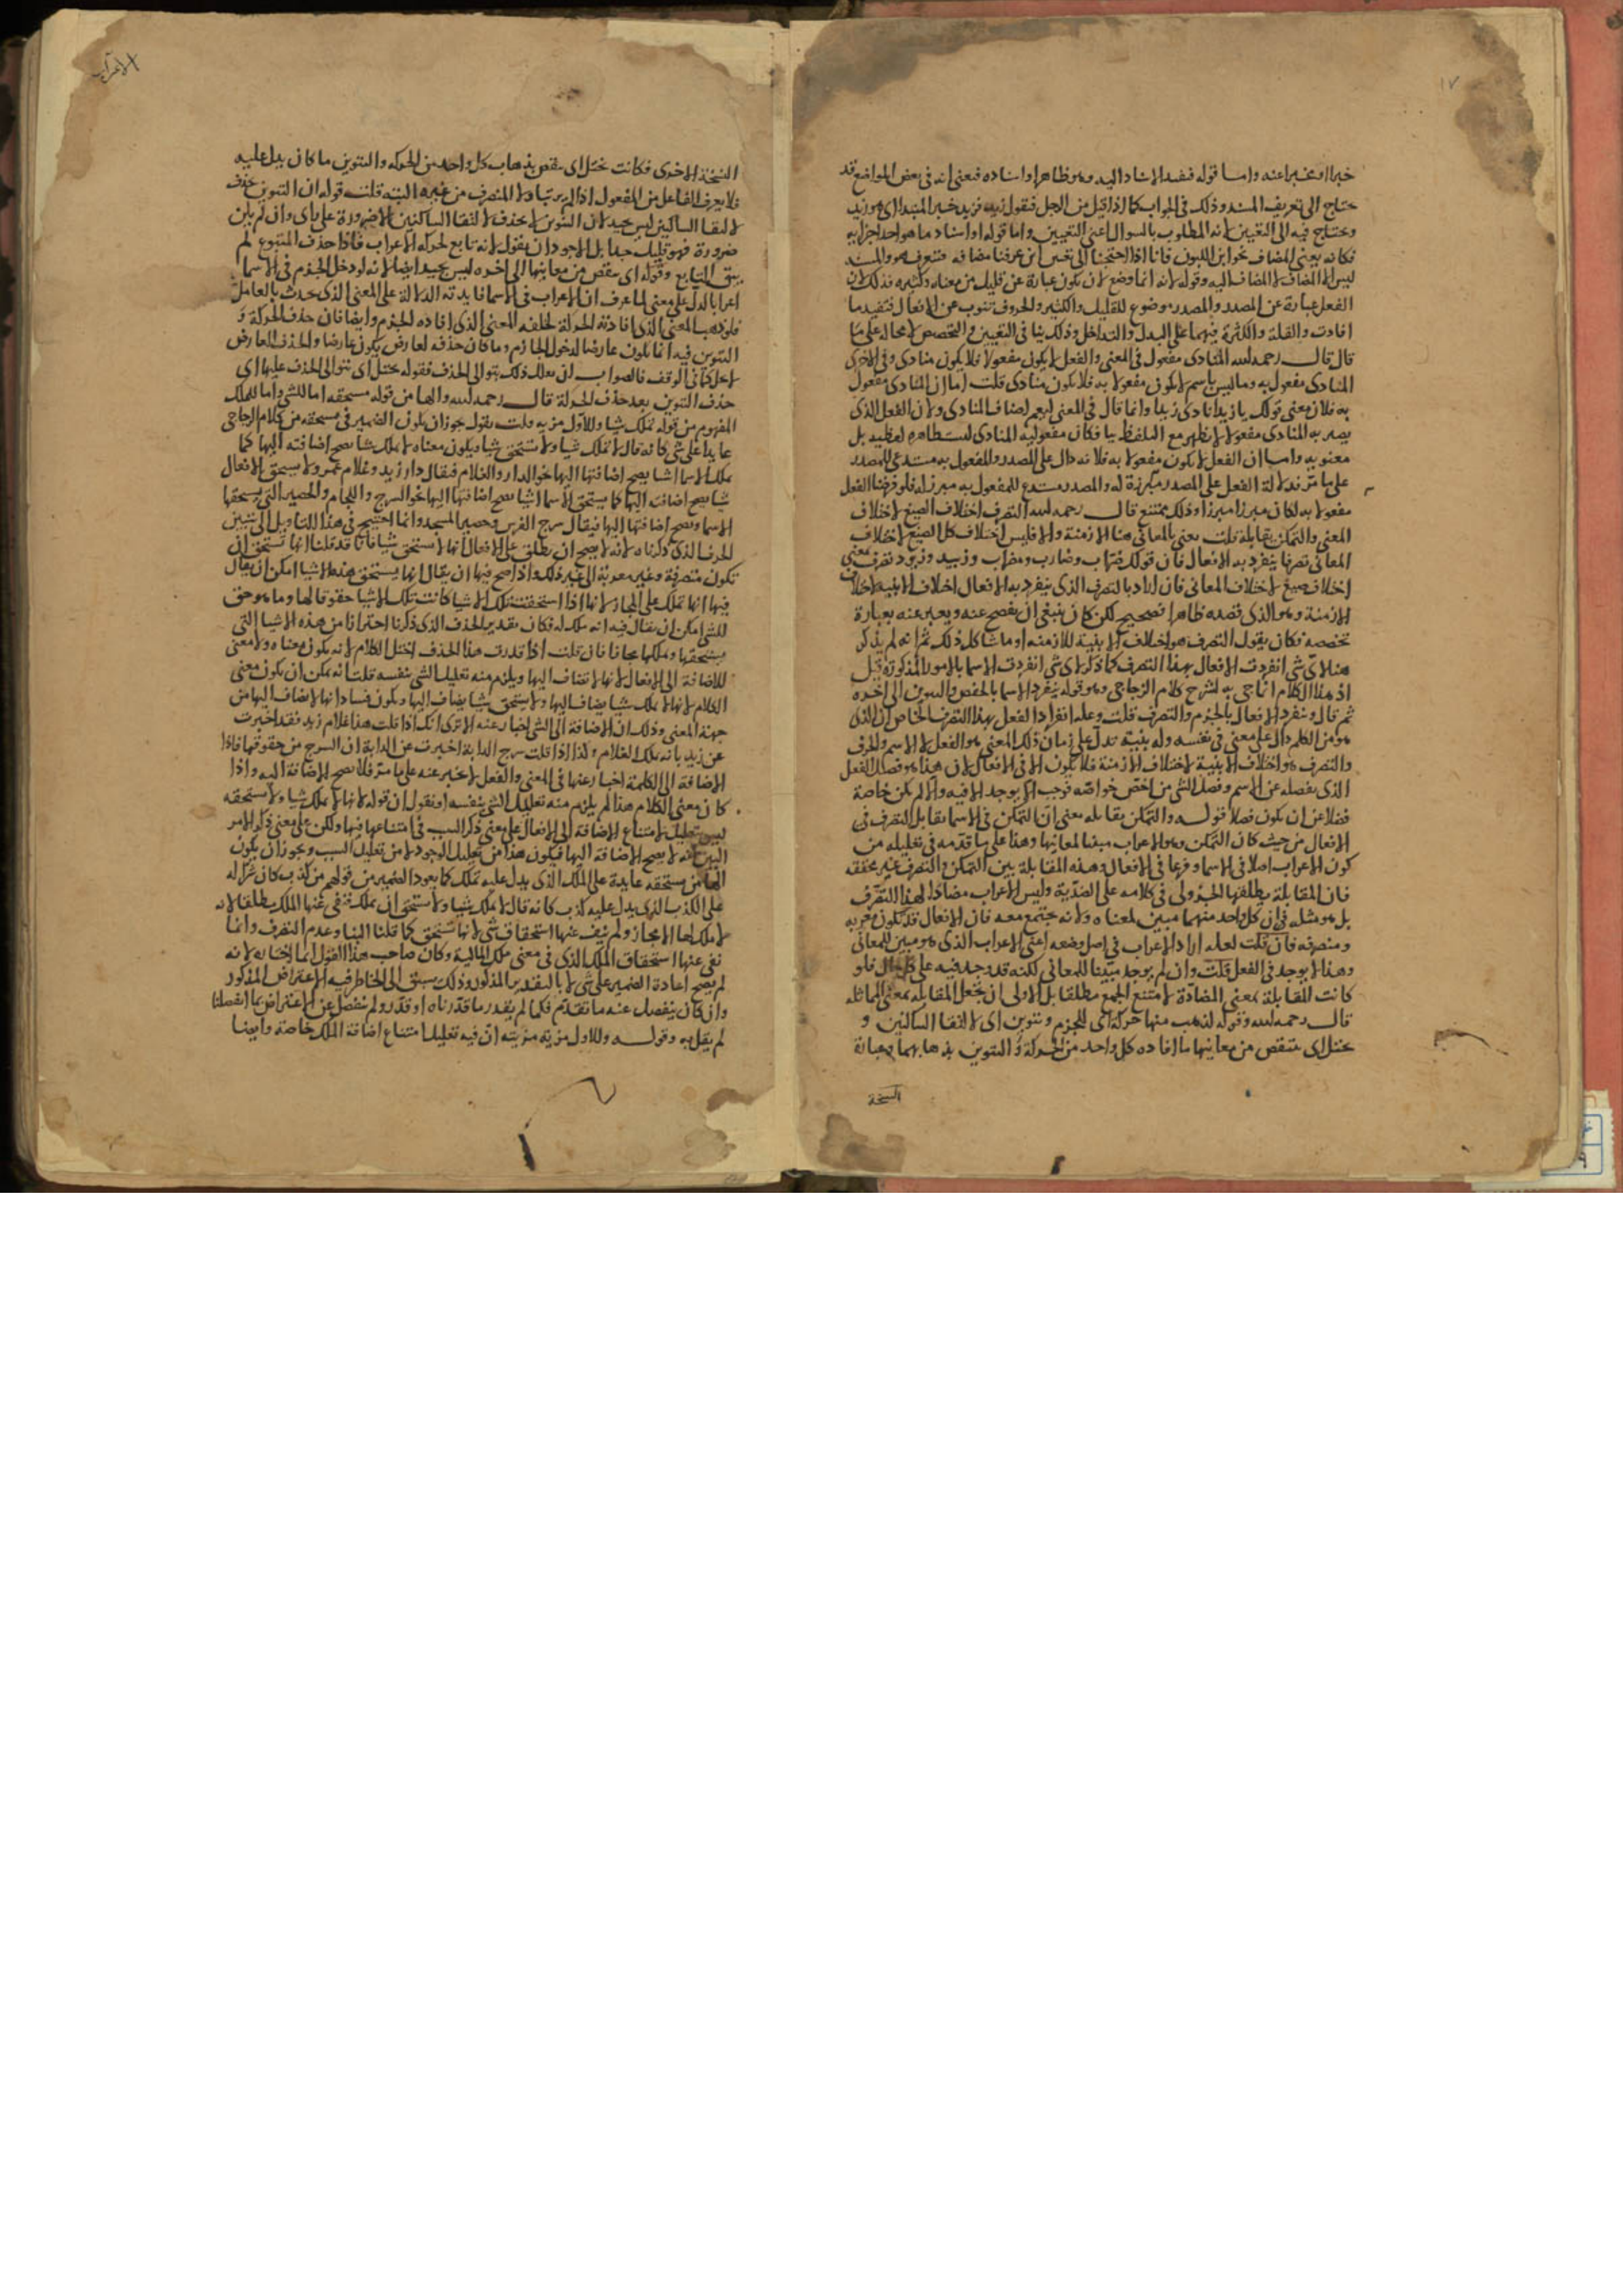 ١٧
خبرا او مخبرا عنه واما قوله فقيد الاسناد اليه وهو ظاهر او اسناده فيعني انه في بعض المواضع قد
يحتاج الى تعريف المسند وذلك في الجواب كما اذا قيل من الرجل فتقول زيد فزيد خبر المبتدا اي هو زيد
ويحتاج فيه الى التعيين لانه المطلوب بالسوال اعني التعيين واما قوله او اسناد ما هو احد اجزايه
فكانه يعني المضاف نحو ابن اللبون فانا اذا احتجنا الى تعيين ابن عرفنا مضافه فتعرف هو والمسند
ليس الا المضاف لا المضاف اليه وقوله لانه انما وضع لان يكون عبارة عن قليل من معناه وكثيره فذلك لان
الفعل عبارة عن المصدر والمصدر موضوع للقليل والكثير والحروف تنوب عن الافعال فتفيد ما
افادت والقلة والكثرة فيهما على البدل والتداخل وذلك ينافي التعيين والتخصيص لا محالة على ما
قال قال رحمه الله المنادى مفعول في المعنى والفعل لا يكون مفعولا فلا يكون منادى وفي الاخرى
المنادى مفعول به وما ليس باسم لا يكون مفعولا به فلا يكون منادى قلت اما ان المنادى مفعول
به فلان معنى قولك يا زيد انادي زيدا وانما قال في المعنى ليعم اصناف المنادى ولان الفعل الذي
يصير به المنادى مفعولا لا يظهر مع التلفظ بيا فكان مفعوليه المنادى لفظيه بل
معنويه واما ان الفعل لا يكون مفعولا به فلانه دال على المصدر والمفعول به مستدعى للمصدر
على ما مر فدلالة الفعل على المصدر مبرزة له والمصدر مستدع للمفعول به مبرز له فلو فرضنا الفعل
مفعولا به لكان مبرزا مبرزا وذلك ممتنع قال رحمه الله التصرف اختلاف الصيغ لاختلاف
المعنى والتمكن يقابله قلت يعني بالمعاني هنا الازمنة والا فليس اختلاف كل الصيغ لاختلاف
المعاني تصرفا ينفرد به الافعال فان قولك ضراب وضارب ومضراب وزبيد وزيود تصرف بمعنى
اختلاف صيغ لاختلاف المعاني فان اراد بالتصرف الذي ينفرد به الافعال اختلاف الابنيه لاختلاف
الازمنة وهو الذي قصده ظاهرا فصحيح لكن كان ينبغي ان يفصح عنه ويعبر عنه بعبارة
تخصصه فكان يقول التصرف هو اختلاف الابنية للازمنه او ما شاكل ذلك ثم انه لم يذكر
هنا لاي شي انفردت الافعال بهذا التصرف كما ذكر لاي شي انفردت الاسما بالامور المذكورة قبل
اذ هذا الكلام انما جي به لشرح كلام الزجاجي وهو قوله ينفرد الاسما بالخفض والتنوين الى اخره
ثم قال وينفرد الافعال بالجزم والتصرف قلت وعلة انفراد الفعل بهذا التصرف الخاص ان الذي
هو من الكلم دال على معنى في نفسه وله بنية تدل على زمان ذلك المعنى هو الفعل لا الاسم والحرف
والتصرف هو اختلاف الابنية لاختلاف الازمنة فلا يكون الا في الافعال لان هذا هو فصل الفعل
الذي يفصله عن الاسم وفصل الشي من اخص خواصه فوجب الا يوجد الا فيه والا لم يكن خاصة
فضلا عن ان يكون فصلا قوله والتمكن يقابله يعني ان التمكن في الاسما يقابل التصرف في
الافعال من حيث كان التمكن وهو الاعراب مبينا لمعانيها وهذا على ما قدمه في تعليله من
كون الاعراب اصلا في الاسما وفرعا في الافعال وهذه المقابلة بين التمكن والتصرف غير محققه
فان المقابلة يطلقها الجزولي في كلامه على الضدية وليس الاعراب مضادا لهذا التصرف
بل هو مثله في ان كل واحد منهما مبين لمعناه ولانه يجتمع معه فان الافعال قد تكون معربه
ومتصرفه فان قلت لعله اراد الاعراب في اصل وضعه اعني الاعراب الذي هو مبين للمعاني
وهذا لا يوجد في الفعل قلت وان لم يوجد مبينا للمعاني لكنه قد وجد فيه على كل حال فلو
كانت المقابلة بمعنى المضادة لامتنع الجمع مطلقا بل الاولى ان نجعل المقابله بمعنى المماثله
قال رحمه الله وقوله لذهب منها حركة اي للجزم وتنوين اي لالتقا الساكنين و
يختل اي ينتقص من معانيها ما افاده كل واحد من الحركة و التنوين بذهابهما وعبارة
النسخة
الاعراب
النسخة الاخرى فكانت تختل اي ينقص بذهاب كل واحد من الحركه والتنوين ما كان يدل عليه
فلا يعرف الفاعل من المفعول اذا لم يرتبا ولا المنصرف من غيره البتة قلت قوله ان التنوين حذف
لالتقا الساكنين ليس بجيد لان التنوين لا يحذف لالتقا الساكنين الا ضرورة على باي وان لم يكن
ضرورة فهو قليل جدا بل الاجود ان يقول لانه تابع لحركة الاعراب فاذا حذف المتبوع لم
يبق التابع وقوله اي ينقص من معانيها الى اخره ليس بجيد ايضا لانه لو دخل الجزم في الاسما
اعرابا لدل على معنى لما عرف ان الاعراب في الاسما فايدته الدلالة على المعنى الذي حدث بالعامل
فلو ذهب المعنى الذي افادته الحركة لخلفه المعنى الذي افاده الجزم وايضا فان حذف الحركة و
التنوين فيه انما يكون عارضا لدخول الجازم وما كان حذفه لعارض يكون عارضا والحذف العارض
لا يخل كما في الوقف فالصواب ان يعلل ذلك بتوالي الحذف فقوله يختل اي بتوالي الحذف عليها اي
حذف التنوين بعد حذف الحركة قال رحمه الله والها من قوله مستحقه اما للشي واما للملك
المفهوم من قوله تملك شيا وللاول مزيه قلت يقول يجوز ان يكون الضمير في مستحقه من كلام الزجاجي
عايدا على شي كانه قال لا تملك شيا ولا تستحق شيا ويكون معناه لا يملك شيا يصح اضافته اليها كما
يملك الاسما اشيا يصح اضافتها اليها نحو الدار والغلام فيقال دار زيد وغلام عمرو ولا يستحق الافعال
شيا يصح اضافته اليها كما يستحق الاسما اشيا يصح اضافتها اليها نحو السرج واللجام والحصير التي يستحقها
الاسما ويصح اضافتها اليها فيقال سرج الفرس وحصير المسجد وانما احتيج في هذا التاويل الى تبيين
الحذف الذي ذكرناه لانه لا يصح ان يطلق على الافعال انها لا تستحق شيا فانا قد قلنا انها تستحق ان
تكون متصرفة وغير معربة الى غير ذلك واذا صح فيها ان يقال انها يستحق هذه الاشيا امكن ان يقال
فيها انها تملك على المجاز لانها اذا استحقت تلك الاشيا كانت تلك الاشيا حقوقا لها وما هو حق
للشي امكن ان يقال فيه انه ملك له فكان تقدير الحذف الذي ذكرنا احترازا من هذه الاشيا التي
يستحقها ويملكها مجازا فان قلت اذا قدرت هذا الحذف اختل الكلام لانه يكون معناه ولا معنى
للاضافة الى الافعال لانها لا تضاف اليها ويلزم منه تعليل الشي بنفسه قلت انه يمكن ان يكون معنى
الكلام لانها لا يملك شيا يضاف اليها ولا يستحق شيا يضاف اليها ويكون فسادا انها لا يضاف اليها من
جهة المعنى وذلك ان الاضافة الى الشي اخبار عنه الا ترى انك اذا قلت هذا غلام زيد فقد اخبرت
عن زيد بانه يملك الغلام وكذا اذا قلت سرج الدابة اخبرت عن الدابة ان السرج من حقوقها فاذا
الاضافة الى الكلمة اخبار عنها في المعنى والفعل لا يخبر عنه على ما مر فلا يصح الاضافة اليه واذا
كان معنى الكلام هذا لم يلزم منه تعليل الشي بنفسه او نقول ان قوله لانها لا يملك شيا ولا مستحقه
ليس تعليلا لامتناع الاضافة الى الافعال على معنى ذكر السبب في امتناعها فيها ولكن على معنى ذكر الامر
البين انه لا يصح الاضافة اليها فيكون هذا من تعليل الوجود لا من تعليل السبب ويجوز ان يكون
الها من مستحقه عايدة على الملك الذي يدل عليه تملك كما يعود الضمير من قولهم من كذب كان شرا له
على الكذب الذي يدل عليه كذب كانه قال لا يملك شيا ولا يستحق ان يملك فنفى عنها الملك مطلقا لانه
لا ملك لها الا مجاز ولم ينف عنها استحقاق شي لانها تستحق كما قلنا البنا وعدم التصرف وانما
نفى عنها استحقاق الملك الذي في معنى ملك المالية وكان صاحب هذا القول انما اختاره لانه
لم يصح اعادة الضمير على شي الا بالتقدير المذكور وذلك يسبق الى الخاطر فيه الاعتراض المذكور
وان كان ينفصل عنه ما تقدم فكما لم يقدر ما قدرناه او قدر ولم ينفصل عن الاعتراض بما انفصلنا
لم يقل به وقوله وللاول مزية مزيته ان فيه تعليلا امتناع اضافة الملك خاصة وايضا